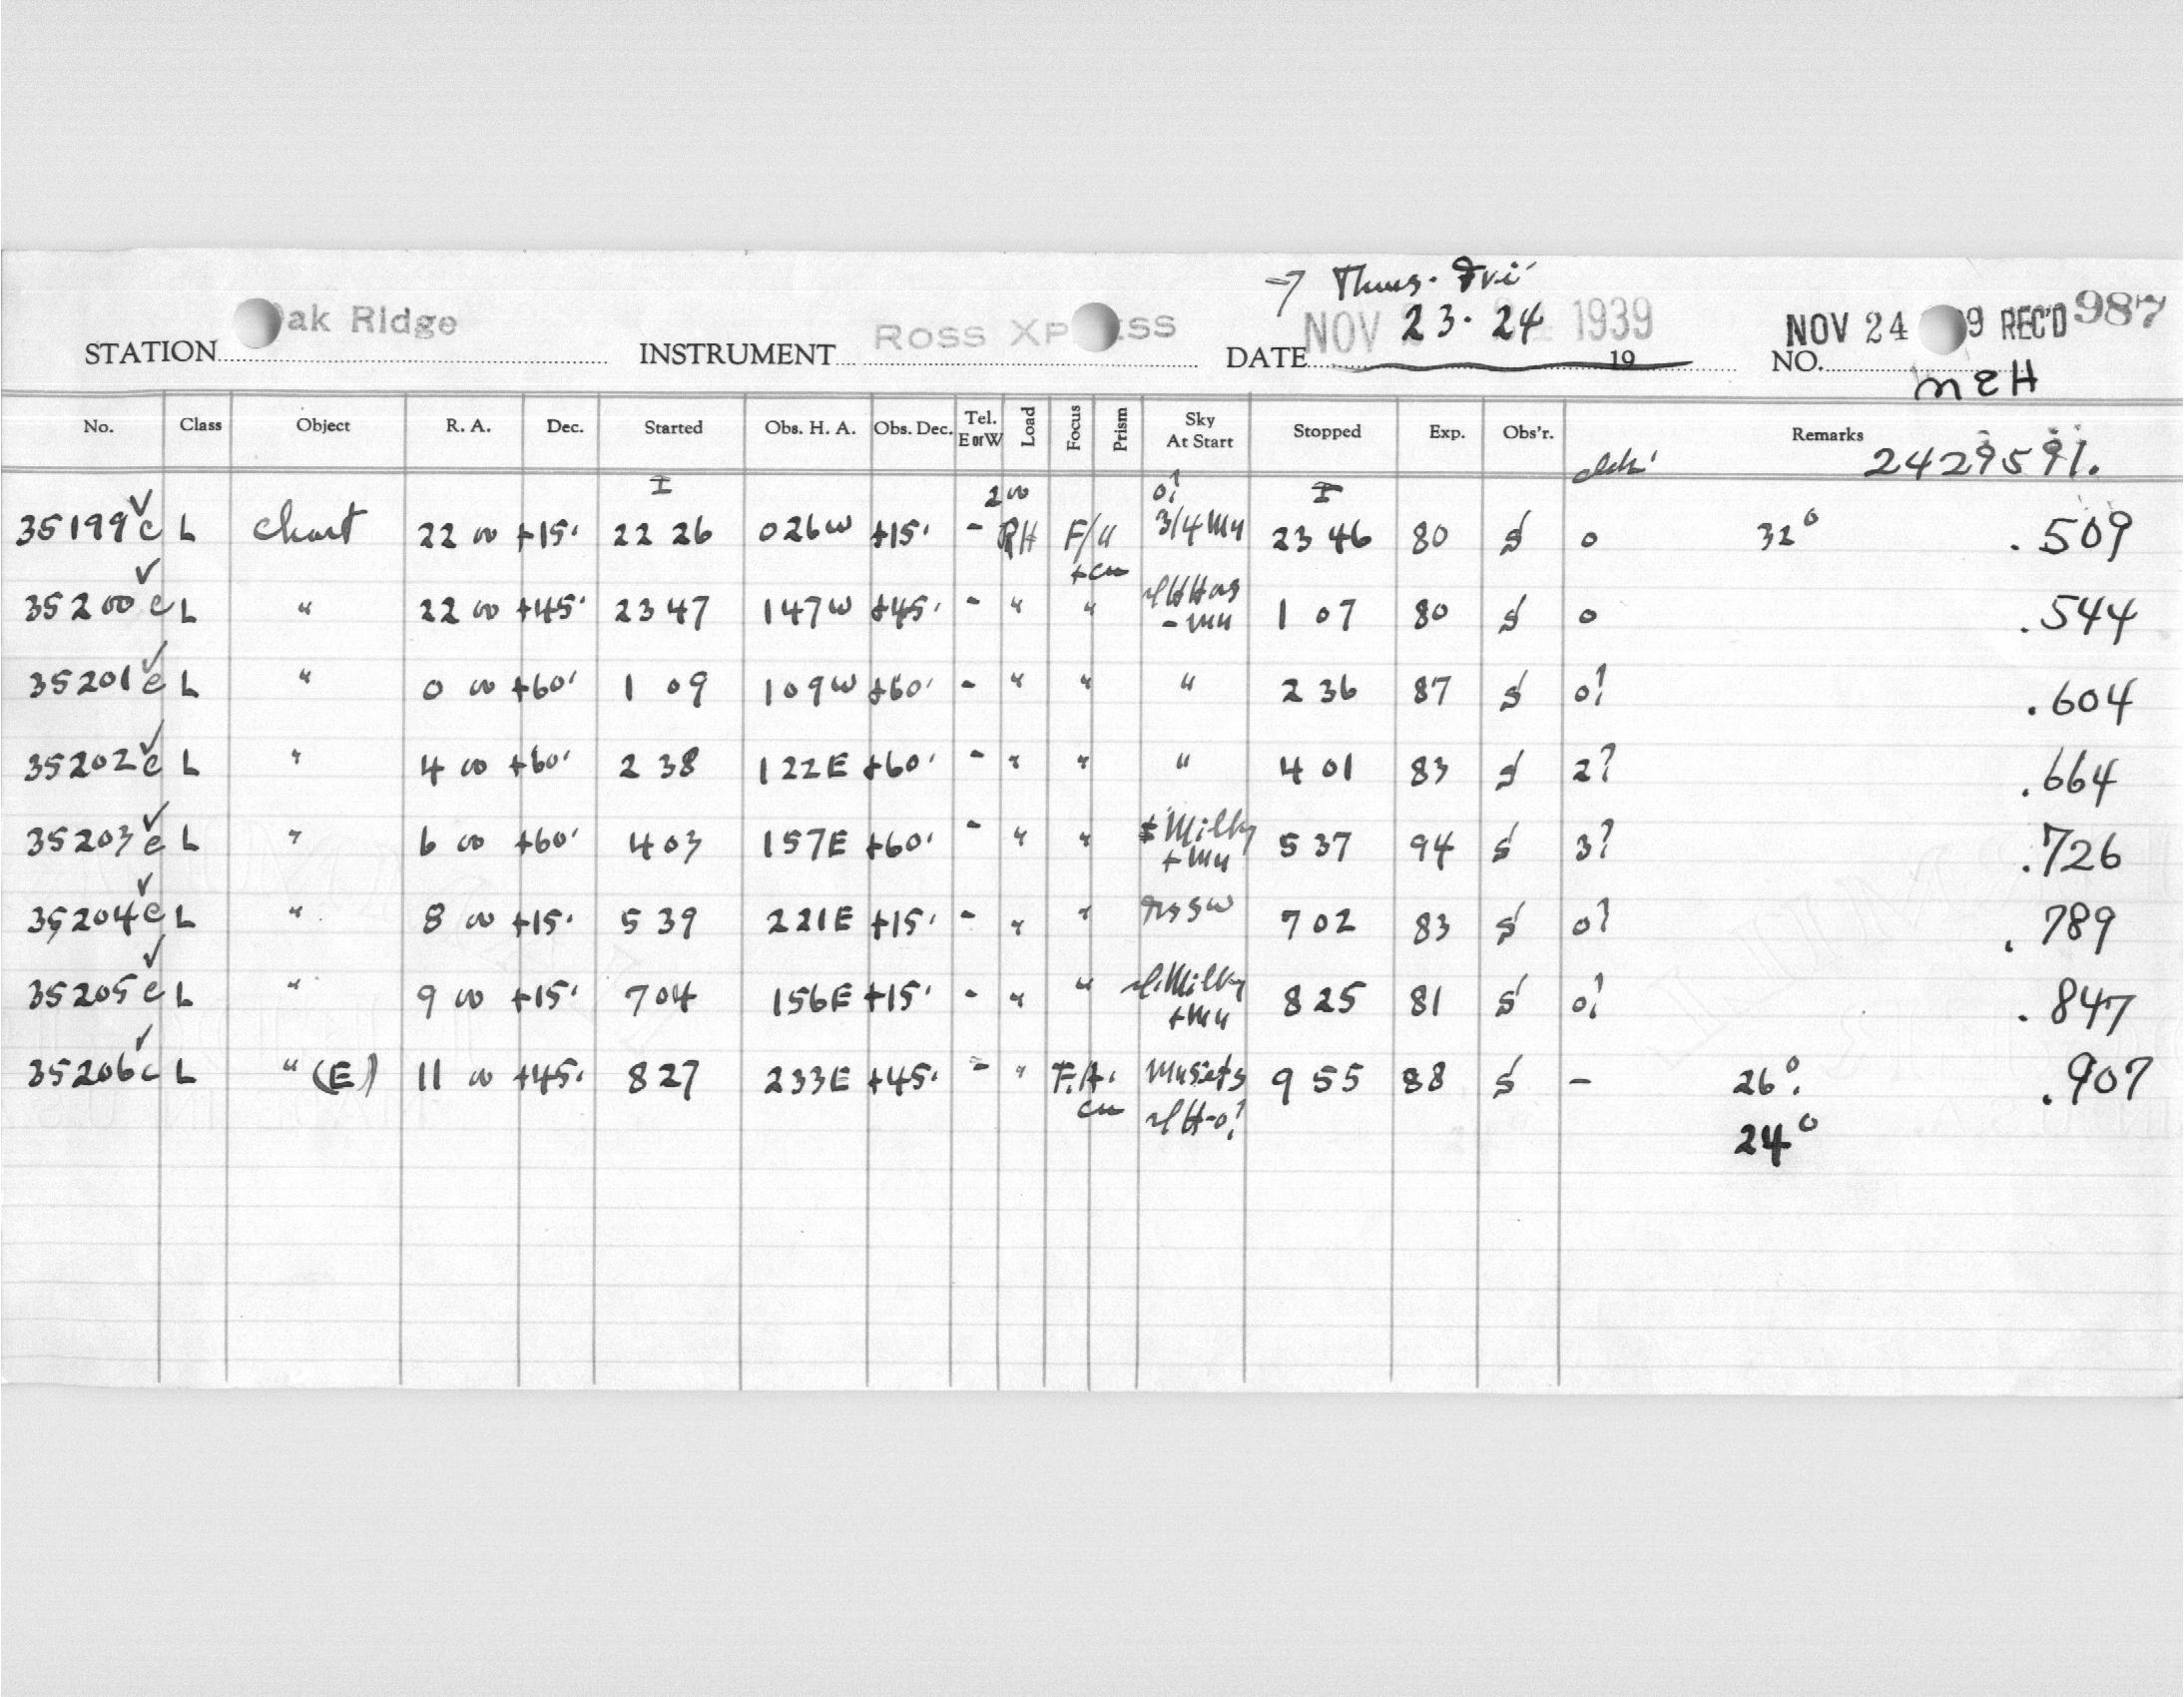 → Thurs. Fri
STATION ak Ridge INSTRUMENT ROSS XP ESS DATE NOV 23. 24 1939 19 NO. NOV 24 9 REC'D 987
No. Class Object R. A. Dec. Started Obs. H. A. Obs. Dec. Tel. E or W Load Focus Prism Sky At Start Stopped Exp. Obs'r. Remarks 2429591.
35199c ✓ L chart 22 00 +15. 22 26 026W +15. - RH 3/4 Mn 23 46 80 S 0 32° .509
35200c ✓ L " 22 00 +45. 23 47 147W +45. - " " 1 07 80 S 0 .544
35201c ✓ L " 0 00 +60. 1 09 109W +60. - " " " 2 36 87 S 0? .604
35202c ✓ L " 4 00 +60. 2 38 122E +60. - " " " 4 01 83 S 2? .664
35203c ✓ L " 6 00 +60. 4 03 157E +60. - " " Milky + Mn 5 37 94 S 3? .726
35204c ✓ L " 8 00 +15. 5 39 221E +15. - " " 7 02 83 S 0? .789
35205c ✓ L " 9 00 +15. 7 04 156E +15. - " " Milky + Mn 8 25 81 S 0? .847
35206c ✓ L " (E) 11 00 +45. 8 27 233E +45. - " F.A. Mn sets 9 55 88 S - 26°. .907
24°